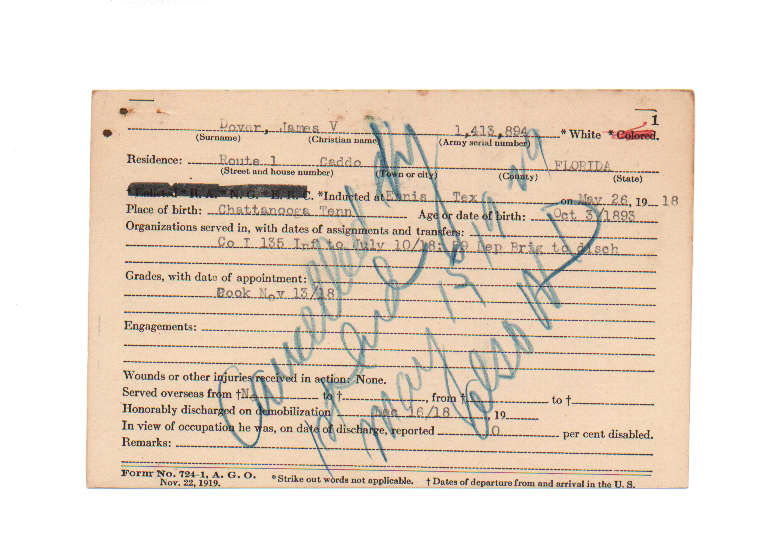 1
Dover, James V 1,413,894 * White * Colored.
(Surname) (Christian name) (Army serial number)
Residence: Route 1 Caddo FLORIDA
(Street and house number) (Town or city) (County) (State)
* R. A. * N. G. * E. R. C. *Inducted at Ennis Tex on May 26, 19 18
Place of birth: Chattanooga Tenn Age or date of birth: Oct 3/1893
Organizations served in, with dates of assignments and transfers:
Co I 135 Inf to July 10/18; 59 Dep Brig to disch
Grades, with date of appointment:
Cook Nov 13/18
Engagements:
Wounds or other injuries received in action: None.
Served overseas from † No to †, from † to †
Honorably discharged on demobilization Dec 16/18 19
In view of occupation he was, on date of discharge, reported 0 per cent disabled.
Remarks:
Form No. 724-1, A. G. O. *Strike out words not applicable. † Dates of departure from and arrival in the U. S.
Nov. 22, 1919.
Cancelled by
May 15